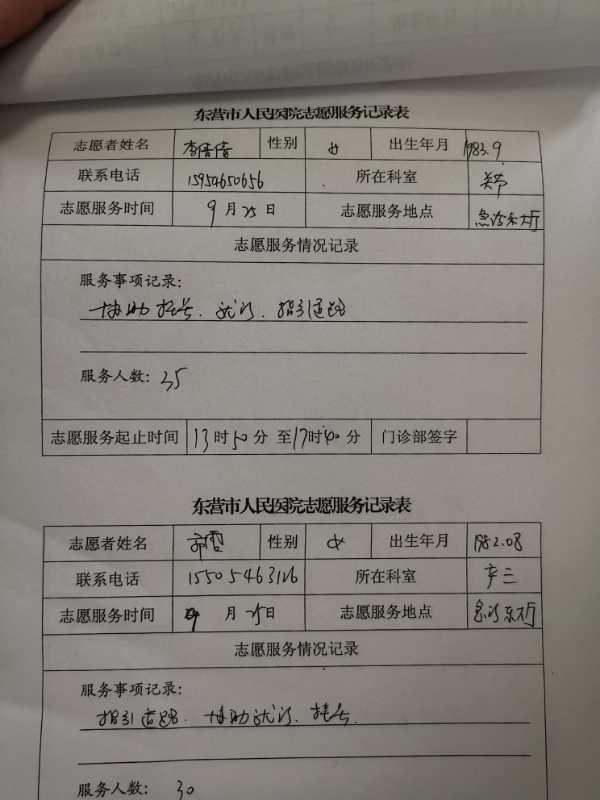 东营市人民医院志愿服务记录表
志愿者姓名 李倩倩 性别 女 出生年月 1983.9
联系电话 15954650656 所在科室
志愿服务时间 9月25日 志愿服务地点 急诊东大厅
志愿服务情况记录
服务事项记录:
协助挂号、就诊、指引道路
服务人数: 35
志愿服务起止时间 13时50分 至17时40分 门诊部签字
东营市人民医院志愿服务记录表
志愿者姓名 性别 女 出生年月 1982.08
联系电话 15505463126 所在科室 产三
志愿服务时间 9月25日 志愿服务地点 急诊东大厅
志愿服务情况记录
服务事项记录:
指引道路、协助就诊、挂号
服务人数: 30